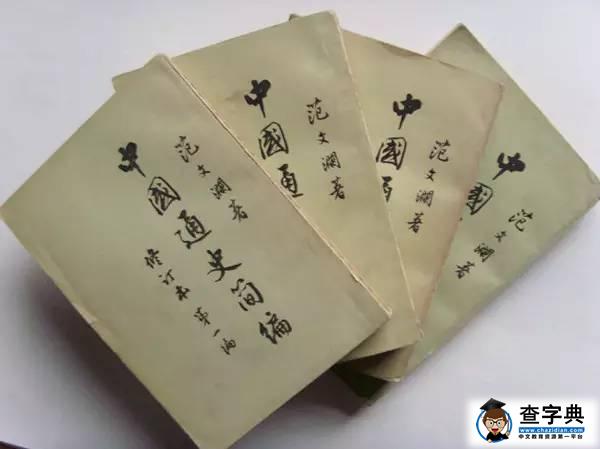 中國通史简编
修订本 第一编
范文澜著
中國通
范文澜著
中國
范文澜著
中國
范文澜著
查字典
www.chazidian.com
中文教育资源第一平台